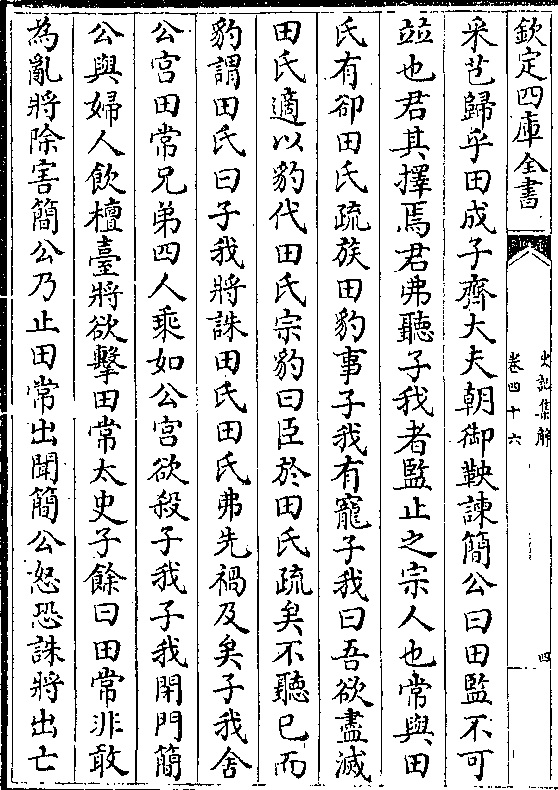 欽定四庫全書
史記集解
卷四十六
四
采芑歸乎田成子齊大夫朝御鞅諫簡公曰田監不可
竝也君其擇焉君弗聽子我者監止之宗人也常與田
氏有卻田氏疏族田豹事子我有寵子我曰吾欲盡滅
田氏適以豹代田氏宗豹曰臣於田氏疏矣不聽已而
豹謂田氏曰子我將誅田氏田氏弗先禍及矣子我舍
公宮田常兄弟四人乘如公宮欲殺子我子我閉門簡
公與婦人飲檀臺將欲擊田常太史子餘曰田常非敢
為亂將除害簡公乃止田常出聞簡公怒恐誅將出亡